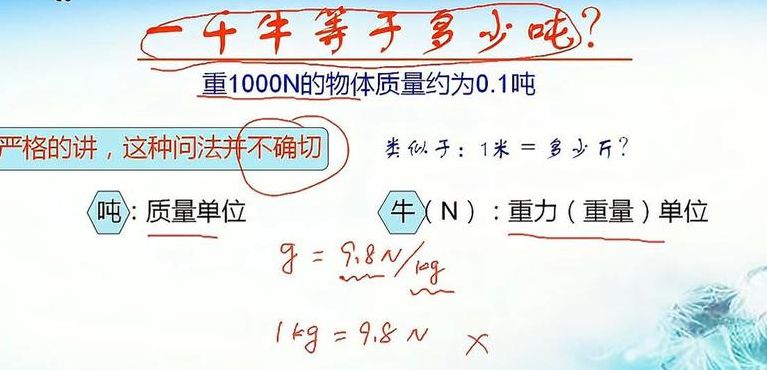 一千牛等于多少吨?
重1000N的物体质量约为0.1吨
严格的讲，这种问法并不确切
类似于：1米 = 多少斤?
吨：质量单位
牛（N）：重力（重量）单位
g = 9.8N/kg
1kg = 9.8N ×